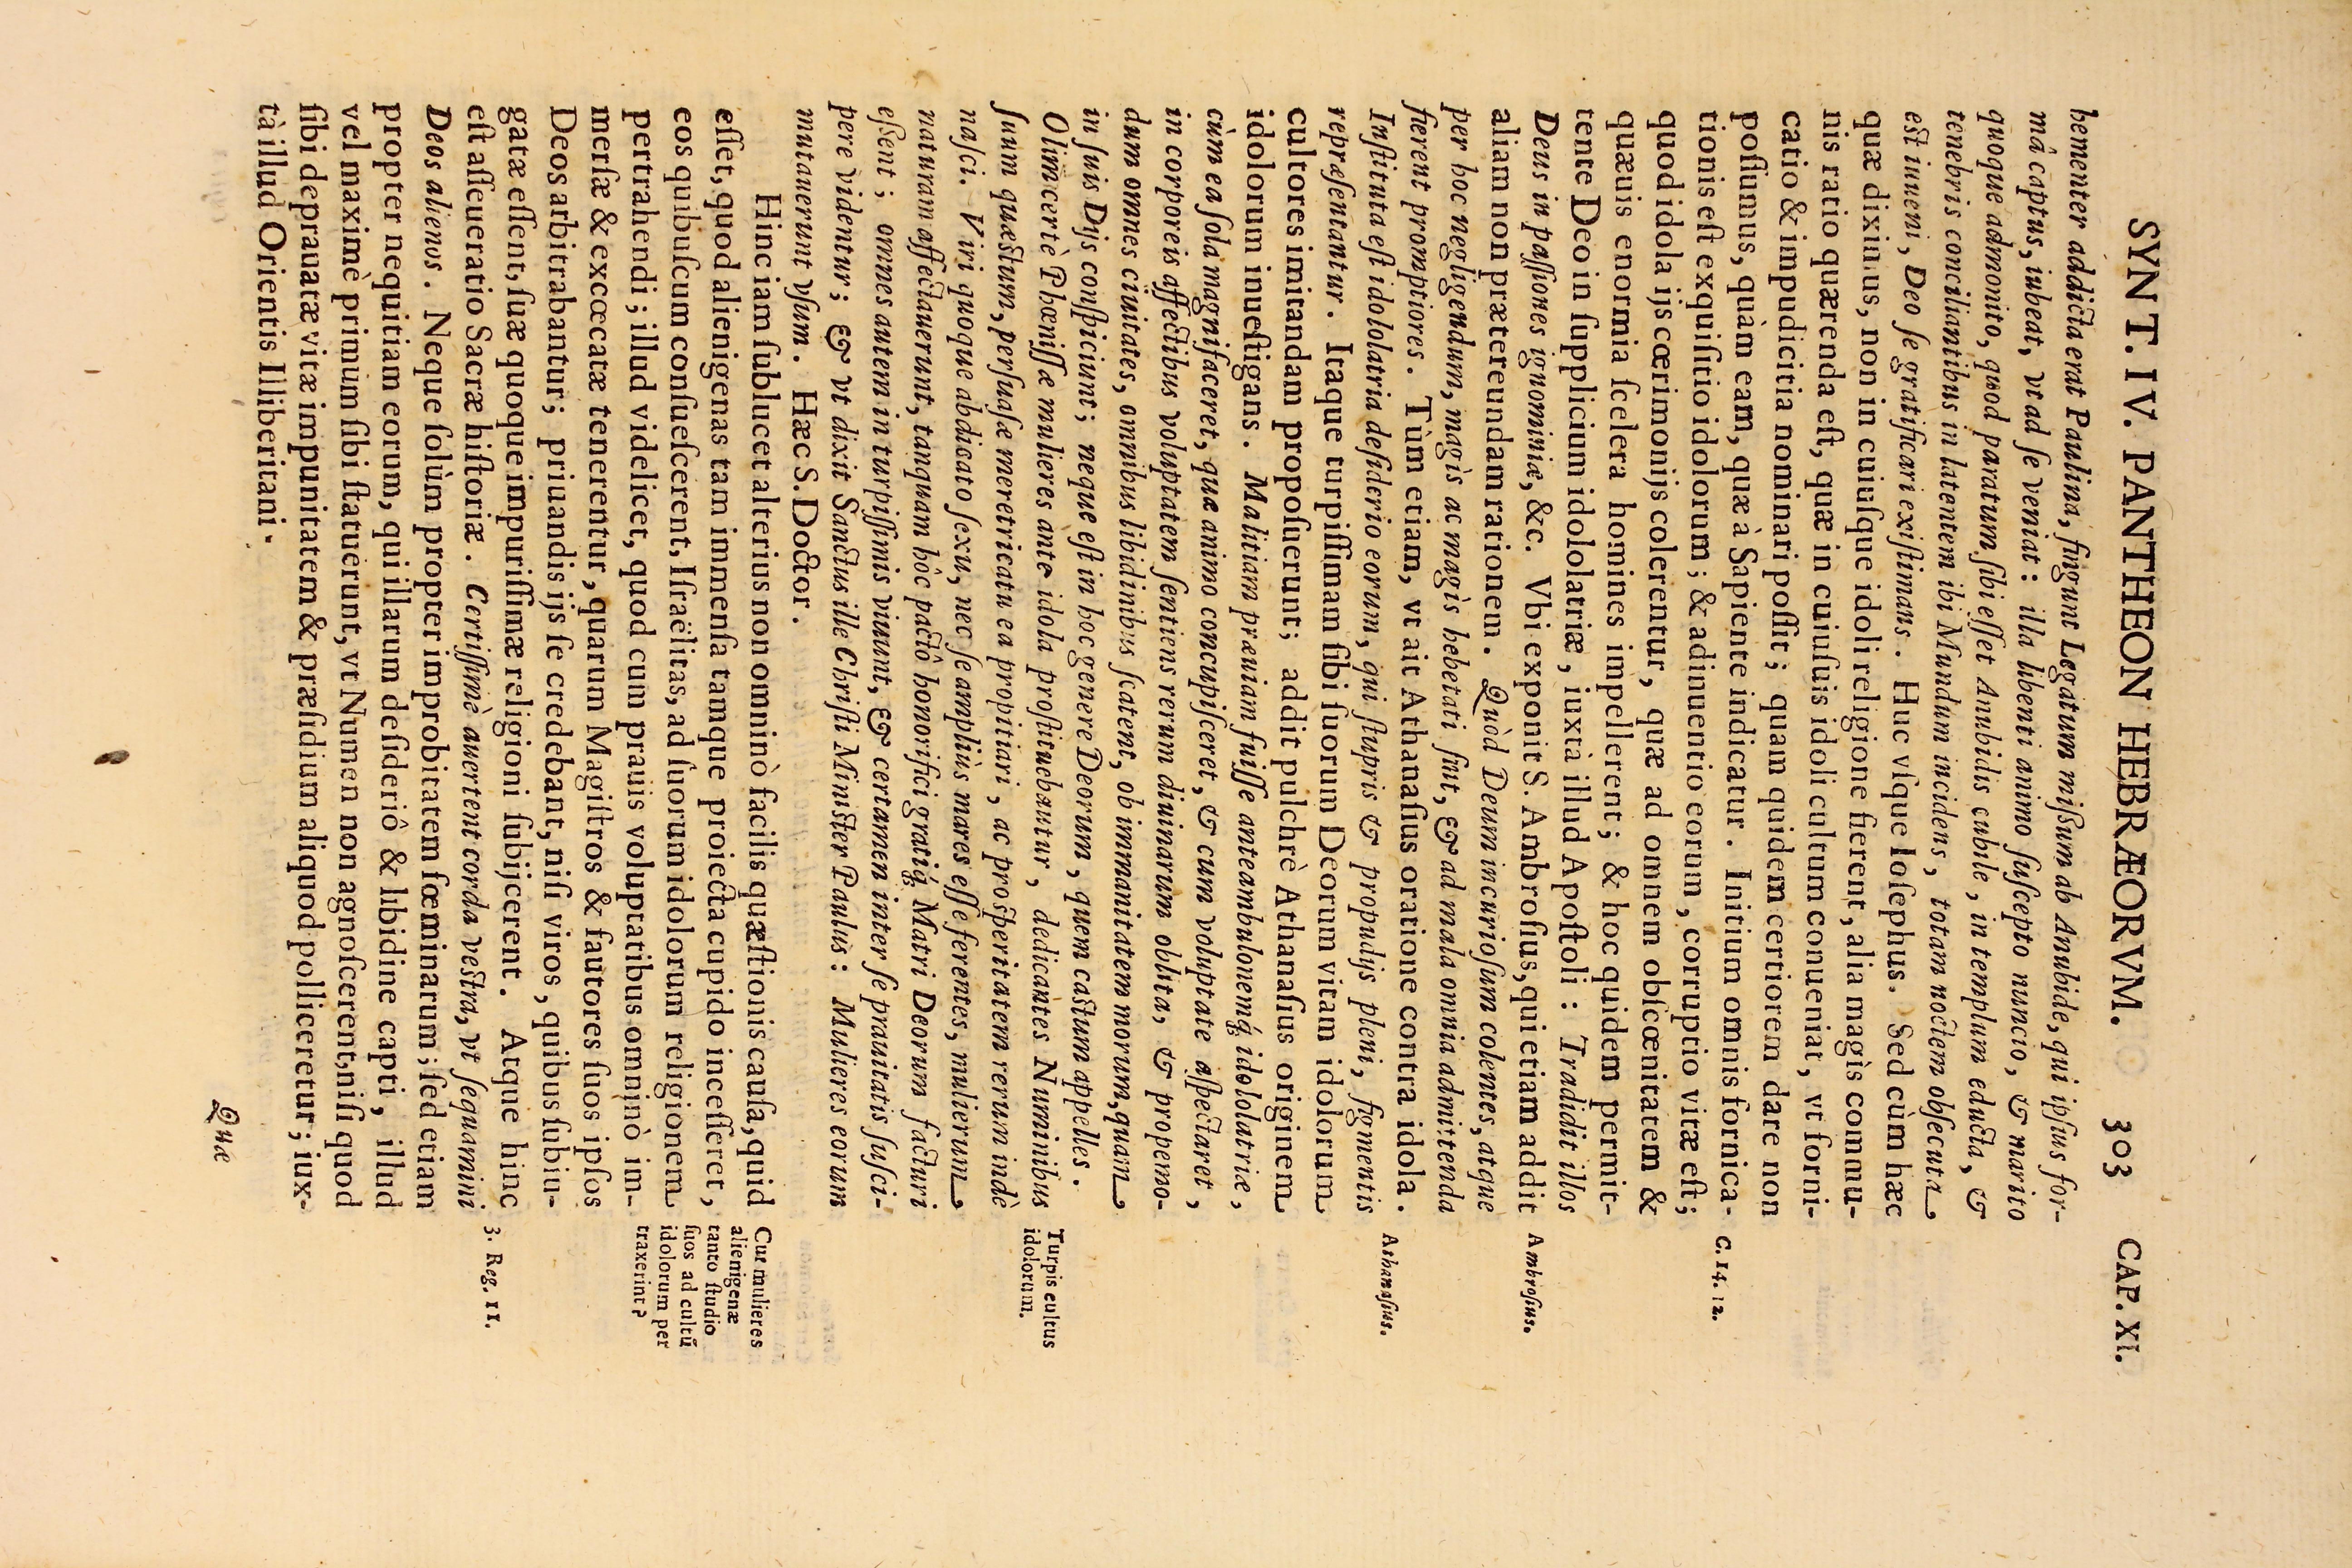 SYNT. IV. PANTHEON HEBRÆORVM. 303 CAP. XI.
hementer addicta erat Paulina, fingunt Legatum mißum ab Anubide, qui ipſius for-
mâ captus, iubeat, vt ad ſe veniat: illa libenti animo ſuſcepto nuncio, & marito
quoque admonito, quod paratum ſibi eſſet Anubidis cubile, in templum educta, &
tenebris conciliantibus in latentem ibi Mundum incidens, totam noctem obſecuta
est iuueni, Deo ſe gratificari exiſtimans. Huc vſque Ioſephus. Sed cùm hæc
quæ diximus, non in cuiuſque idoli religione fierent, alia magìs commu-
nis ratio quærenda eſt, quæ in cuiuſuis idoli cultum conueniat, vt forni-
catio & impudicitia nominari poſſit; quam quidem certiorem dare non
poſſumus, quàm eam, quæ à Sapiente indicatur. Initium omnis fornica-
tionis eſt exquiſitio idolorum; & adinuentio eorum, corruptio vitæ eſt;
C. 14. 12.
quod idola ijs cœrimonijs colerentur, quæ ad omnem obſcœnitatem &
quæuis enormia ſcelera homines impellerent; & hoc quidem permit-
tente Deo in ſupplicium idololatriæ, iuxtà illud Apoſtoli: Tradidit illos
Deus in paſſiones ignominiæ, &c. Vbi exponit S. Ambroſius, qui etiam addit
Ambroſius.
aliam non prætereundam rationem. Quòd Deum incurioſum colentes, atque
per hoc negligendum, magìs ac magìs hebetati ſint, & ad mala omnia admittenda
fierent promptiores. Tùm etiam, vt ait Athanaſius oratione contra idola.
Athanaſius.
Inſtituta eſt idololatria deſiderio eorum, qui ſtupris & propudijs pleni, figmentis
repræſentantur. Itaque turpiſſimam ſibi ſuorum Deorum vitam idolorum
cultores imitandam propoſuerunt; addit pulchrè Athanaſius originem
idolorum inueſtigans. Malitiam præuiam fuiſſe anteambulonemq́ idololatriæ,
cùm ea ſola magnifaceret, quæ animo concupiſceret, & cum voluptate aſpectaret,
in corporeis affectibus voluptatem ſentiens rerum diuinarum oblita, & propemo-
dum omnes ciuitates, omnibus libidinibus ſcatent, ob immanitatem morum, quam
in ſuis Dijs conſpiciunt; neque eſt in hoc genere Deorum, quem castum appelles.
Olim certè Phœniſſæ mulieres ante idola proſtituebantur, dedicantes Numinibus
Turpis cultus
idolorum.
ſuum quæstum, perſuaſæ meretricatu ea propitiari, ac prosperitatem rerum indè
naſci. Viri quoque abdicato ſexu, nec ſe ampliùs mares eſſe ferentes, mulierum
naturam affectauerunt, tanquam hôc pactô honorifici gratiq́ Matri Deorum facturi
eßent; omnes autem in turpiſſimis viuunt, & certamen inter ſe prauitatis ſuſci-
pere videntur; & vt dixit Sanctus ille Chriſti Minister Paulus: Mulieres eorum
mutauerunt vſum. Hæc S. Doctor.
Hinc iam ſublucet alterius non omninò facilis quæſtionis cauſa, quid
eſſet, quod alienigenas tam immenſa tamque proiecta cupido inceſſeret,
eos quibuſcum conſueſcerent, Iſraëlitas, ad ſuorum idolorum religionem
pertrahendi; illud videlicet, quod cum prauis voluptatibus omninò im-
Cur mulieres
alienigenæ
tanto ſtudio
ſuos ad cultũ
idolorum per
traxerint?
merſæ & excœcatæ tenerentur, quarum Magiſtros & fautores ſuos ipſos
Deos arbitrabantur; priuandis ijs ſe credebant, niſi viros, quibus ſubiu-
gatæ eſſent, ſuæ quoque impuriſſimæ religioni ſubijcerent. Atque hinc
eſt aſſeueratio Sacræ hiſtoriæ. Certiſſimè auertent corda vestra, vt ſequamini
3. Reg. 11.
Deos alienos. Neque ſolùm propter improbitatem fœminarum; ſed etiam
propter nequitiam eorum, qui illarum deſideriô & libidine capti, illud
vel maximè primum ſibi ſtatuerunt, vt Numen non agnoſcerent, niſi quod
ſibi deprauatæ vitæ impunitatem & præſidium aliquod polliceretur; iux-
tà illud Orientis Illiberitani.
Quæ